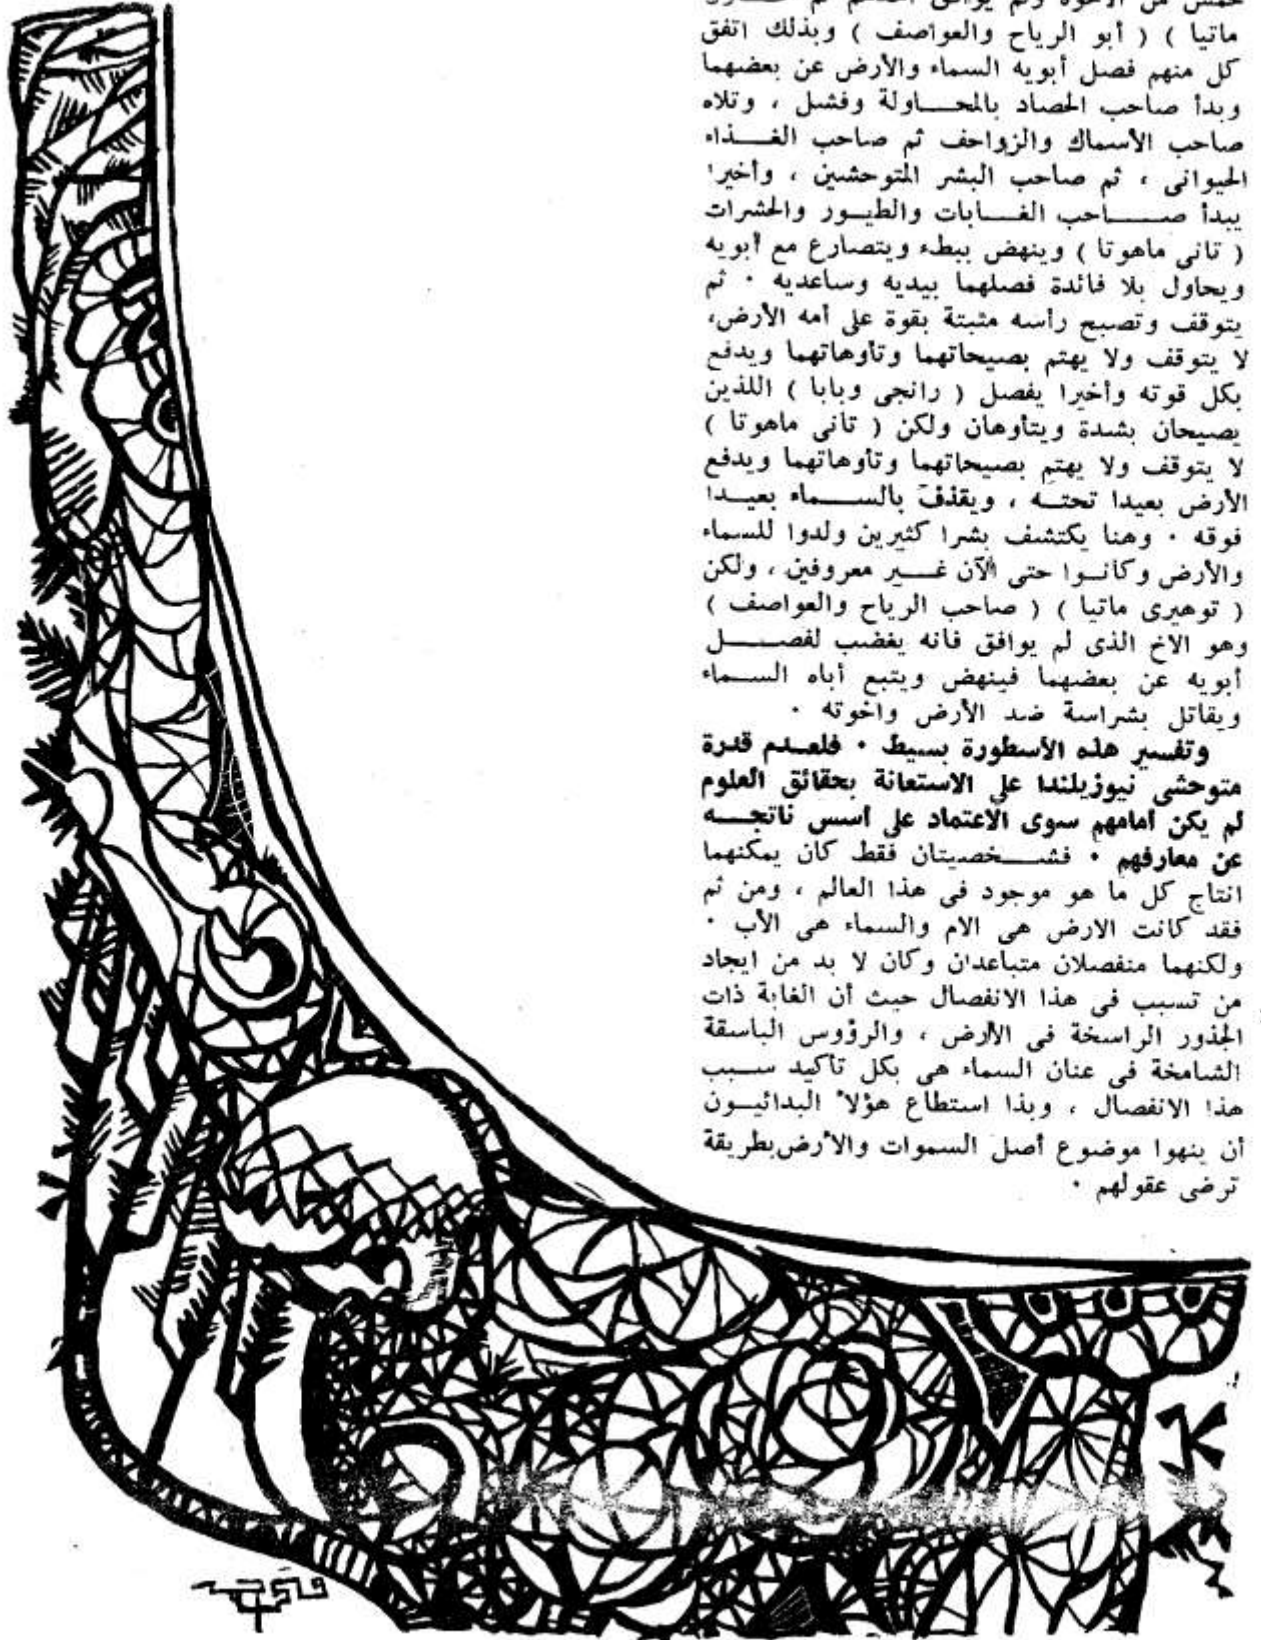 خمس من الاخوة ولم يوافق
ماتيا ) ( أبو الرياح والعواصف ) وبذلك اتفق
كل منهم فصل أبويه السماء والأرض عن بعضهما
وبدأ صاحب الحصاد بالمحـــاولة وفشل ، وتلاه
صاحب الأسماك والزواحف ثم صاحب الغـــذاء
الحيوانى ، ثم صاحب البشر المتوحشين ، وأخيرا
يبدأ صــــاحب الغـــابات والطيــور والحشرات
( تانى ماهوتا ) وينهض ببطء ويتصارع مع أبويه
ويحاول بلا فائدة فصلهما بيديه وساعديه · ثم
يتوقف وتصبح رأسه مثبتة بقوة على أمه الأرض،
لا يتوقف ولا يهتم بصيحاتهما وتأوهاتهما ويدفع
بكل قوته وأخيرا يفصل ( رانجى وبابا ) اللذين
يصيحان بشدة ويتأوهان ولكن ( تانى ماهوتا )
لا يتوقف ولا يهتم بصيحاتهما وتأوهاتهما ويدفع
الأرض بعيدا تحتــه ، ويقذف بالســـماء بعيــدا
فوقه · وهنا يكتشف بشرا كثيرين ولدوا للسماء
والأرض وكانــوا حتى الآن غـــير معروفين ، ولكن
( توهيرى ماتيا ) ( صاحب الرياح والعواصف )
وهو الاخ الذى لم يوافق فانه يغضب لفصــــل
أبويه عن بعضهما فينهض ويتبع أباه الســـماء
ويقاتل بشراسة ضد الأرض واخوته ·
وتفسير هذه الأسطورة بسيط · فلعــدم قدرة
متوحشى نيوزيلندا على الاستعانة بحقائق العلوم
لم يكن أمامهم سوى الاعتماد على أسس ناتجـــه
عن معارفهم · فشـــخصيتان فقط كان يمكنهما
انتاج كل ما هو موجود فى هذا العالم ، ومن ثم
فقد كانت الارض هى الام والسماء هى الأب ·
ولكنهما منفصلان متباعدان وكان لا بد من ايجاد
من تسبب فى هذا الانفصال حيث أن الغابة ذات
الجذور الراسخة فى الأرض ، والرؤوس الباسقة
الشامخة فى عنان السماء هى بكل تأكيد ســبب
هذا الانفصال ، وبذا استطاع هؤلاء البدائيــون
أن ينهوا موضوع أصل السموات والأرض بطريقة
ترضى عقولهم ·